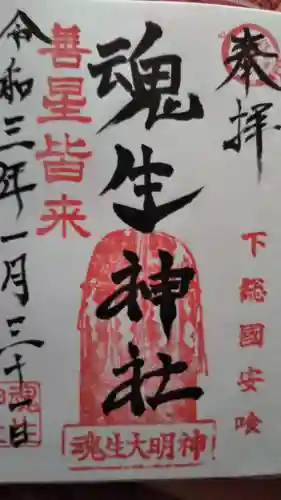 奉拝
下総國安喰
魂生神社
魂生大明神
善星皆来
令和三年一月三十一日